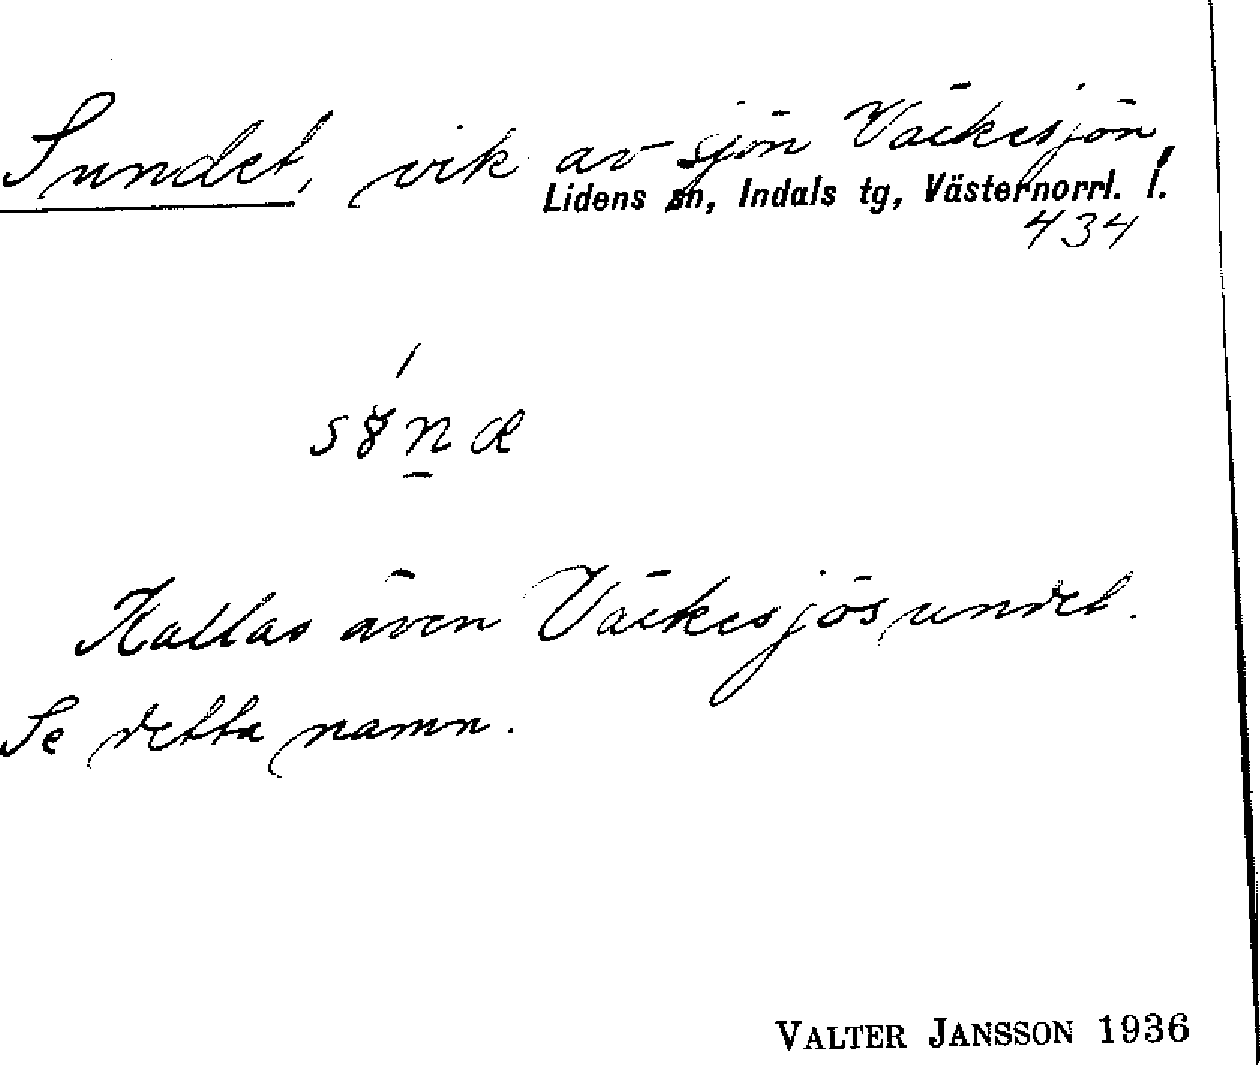 Sundet, vik av sjön Väckesjön
Lidens sn, Indals tg, Västernorrl. l.
434
Kallas även Väckesjösundet.
Se detta namn.
VALTER JANSSON 1936